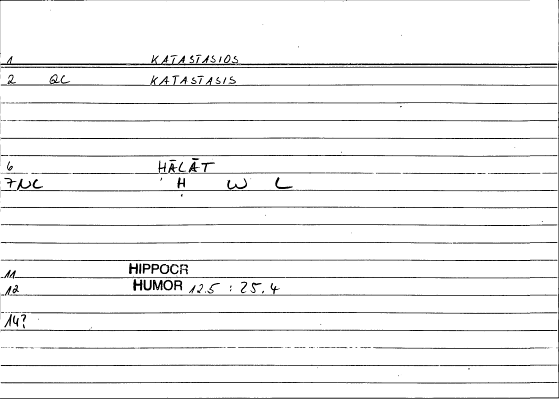 1 KATASTASIOS
2 QC KATASTASIS
6 HĀLĀT
7 NC Ḥ W L
11 HIPPOCR
12 HUMOR 12.5 : 25.4
14?